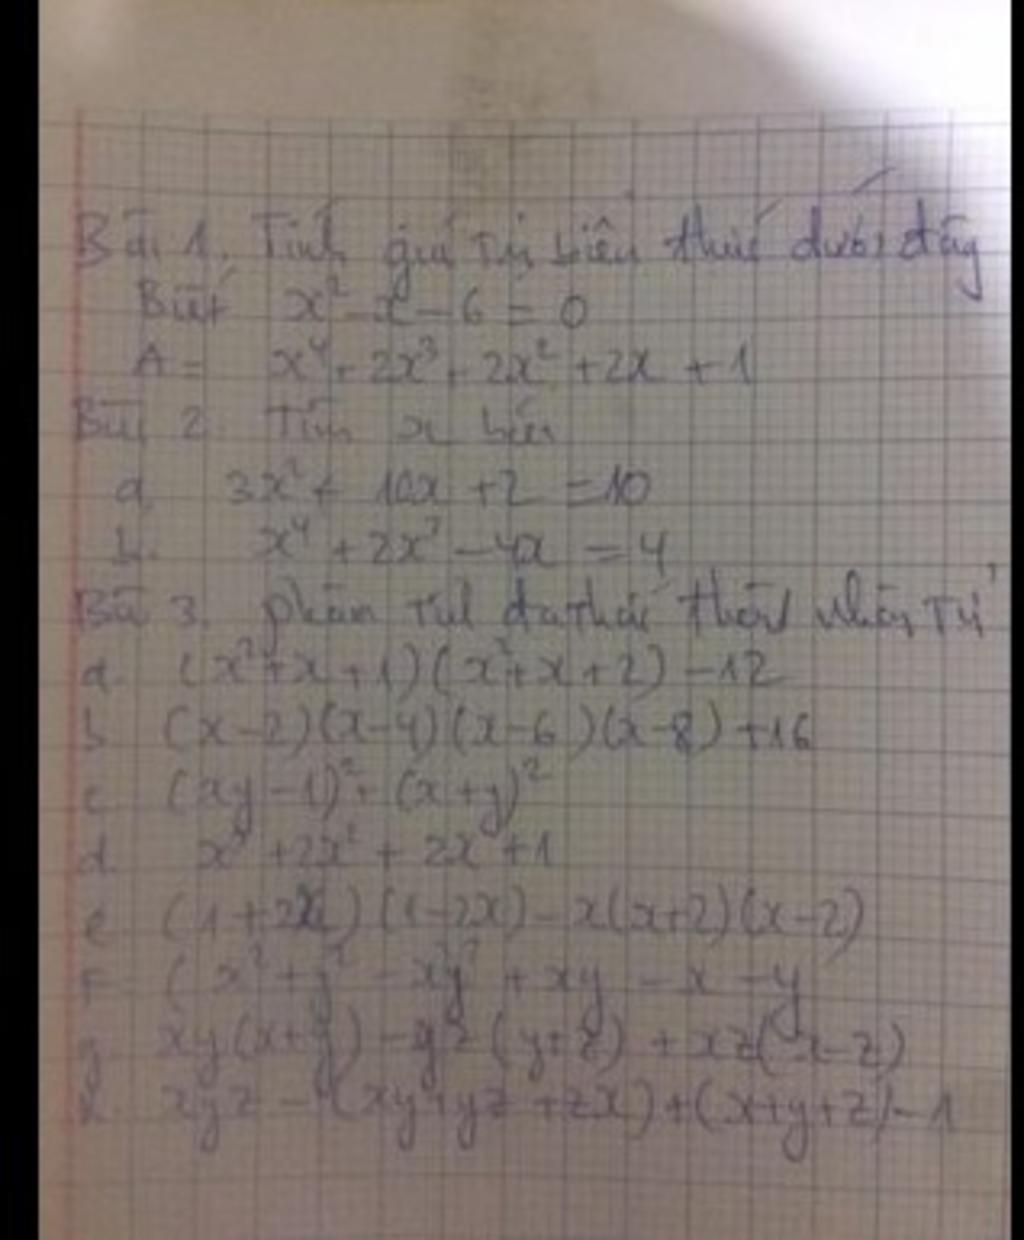 Bài 1. Tính giá trị biểu thức dưới đây
Biết x² - x - 6 = 0
A = x⁴ + 2x³ + 2x² + 2x + 1
Bài 2 Tìm x biết
a 3x² + 10x + 2 = 10
b. x⁴ + 2x³ - 4x = 4
Bài 3. phân tích đa thức thành nhân tử
a. (x² + x + 1)(x² + x + 2) - 12
b (x - 2)(x - 4)(x - 6)(x - 8) + 16
c (xy - 1)² + (x + y)²
d x³ + 2x² + 2x + 1
e (1 + 2x)(1 - 2x) - x(x + 2)(x - 2)
f (x² + y² - x²y² + xy - x - y
g xy(x + y) - yz(y + z) + xz(x - z)
xyz - (xy + yz + zx) + (x + y + z) - 1